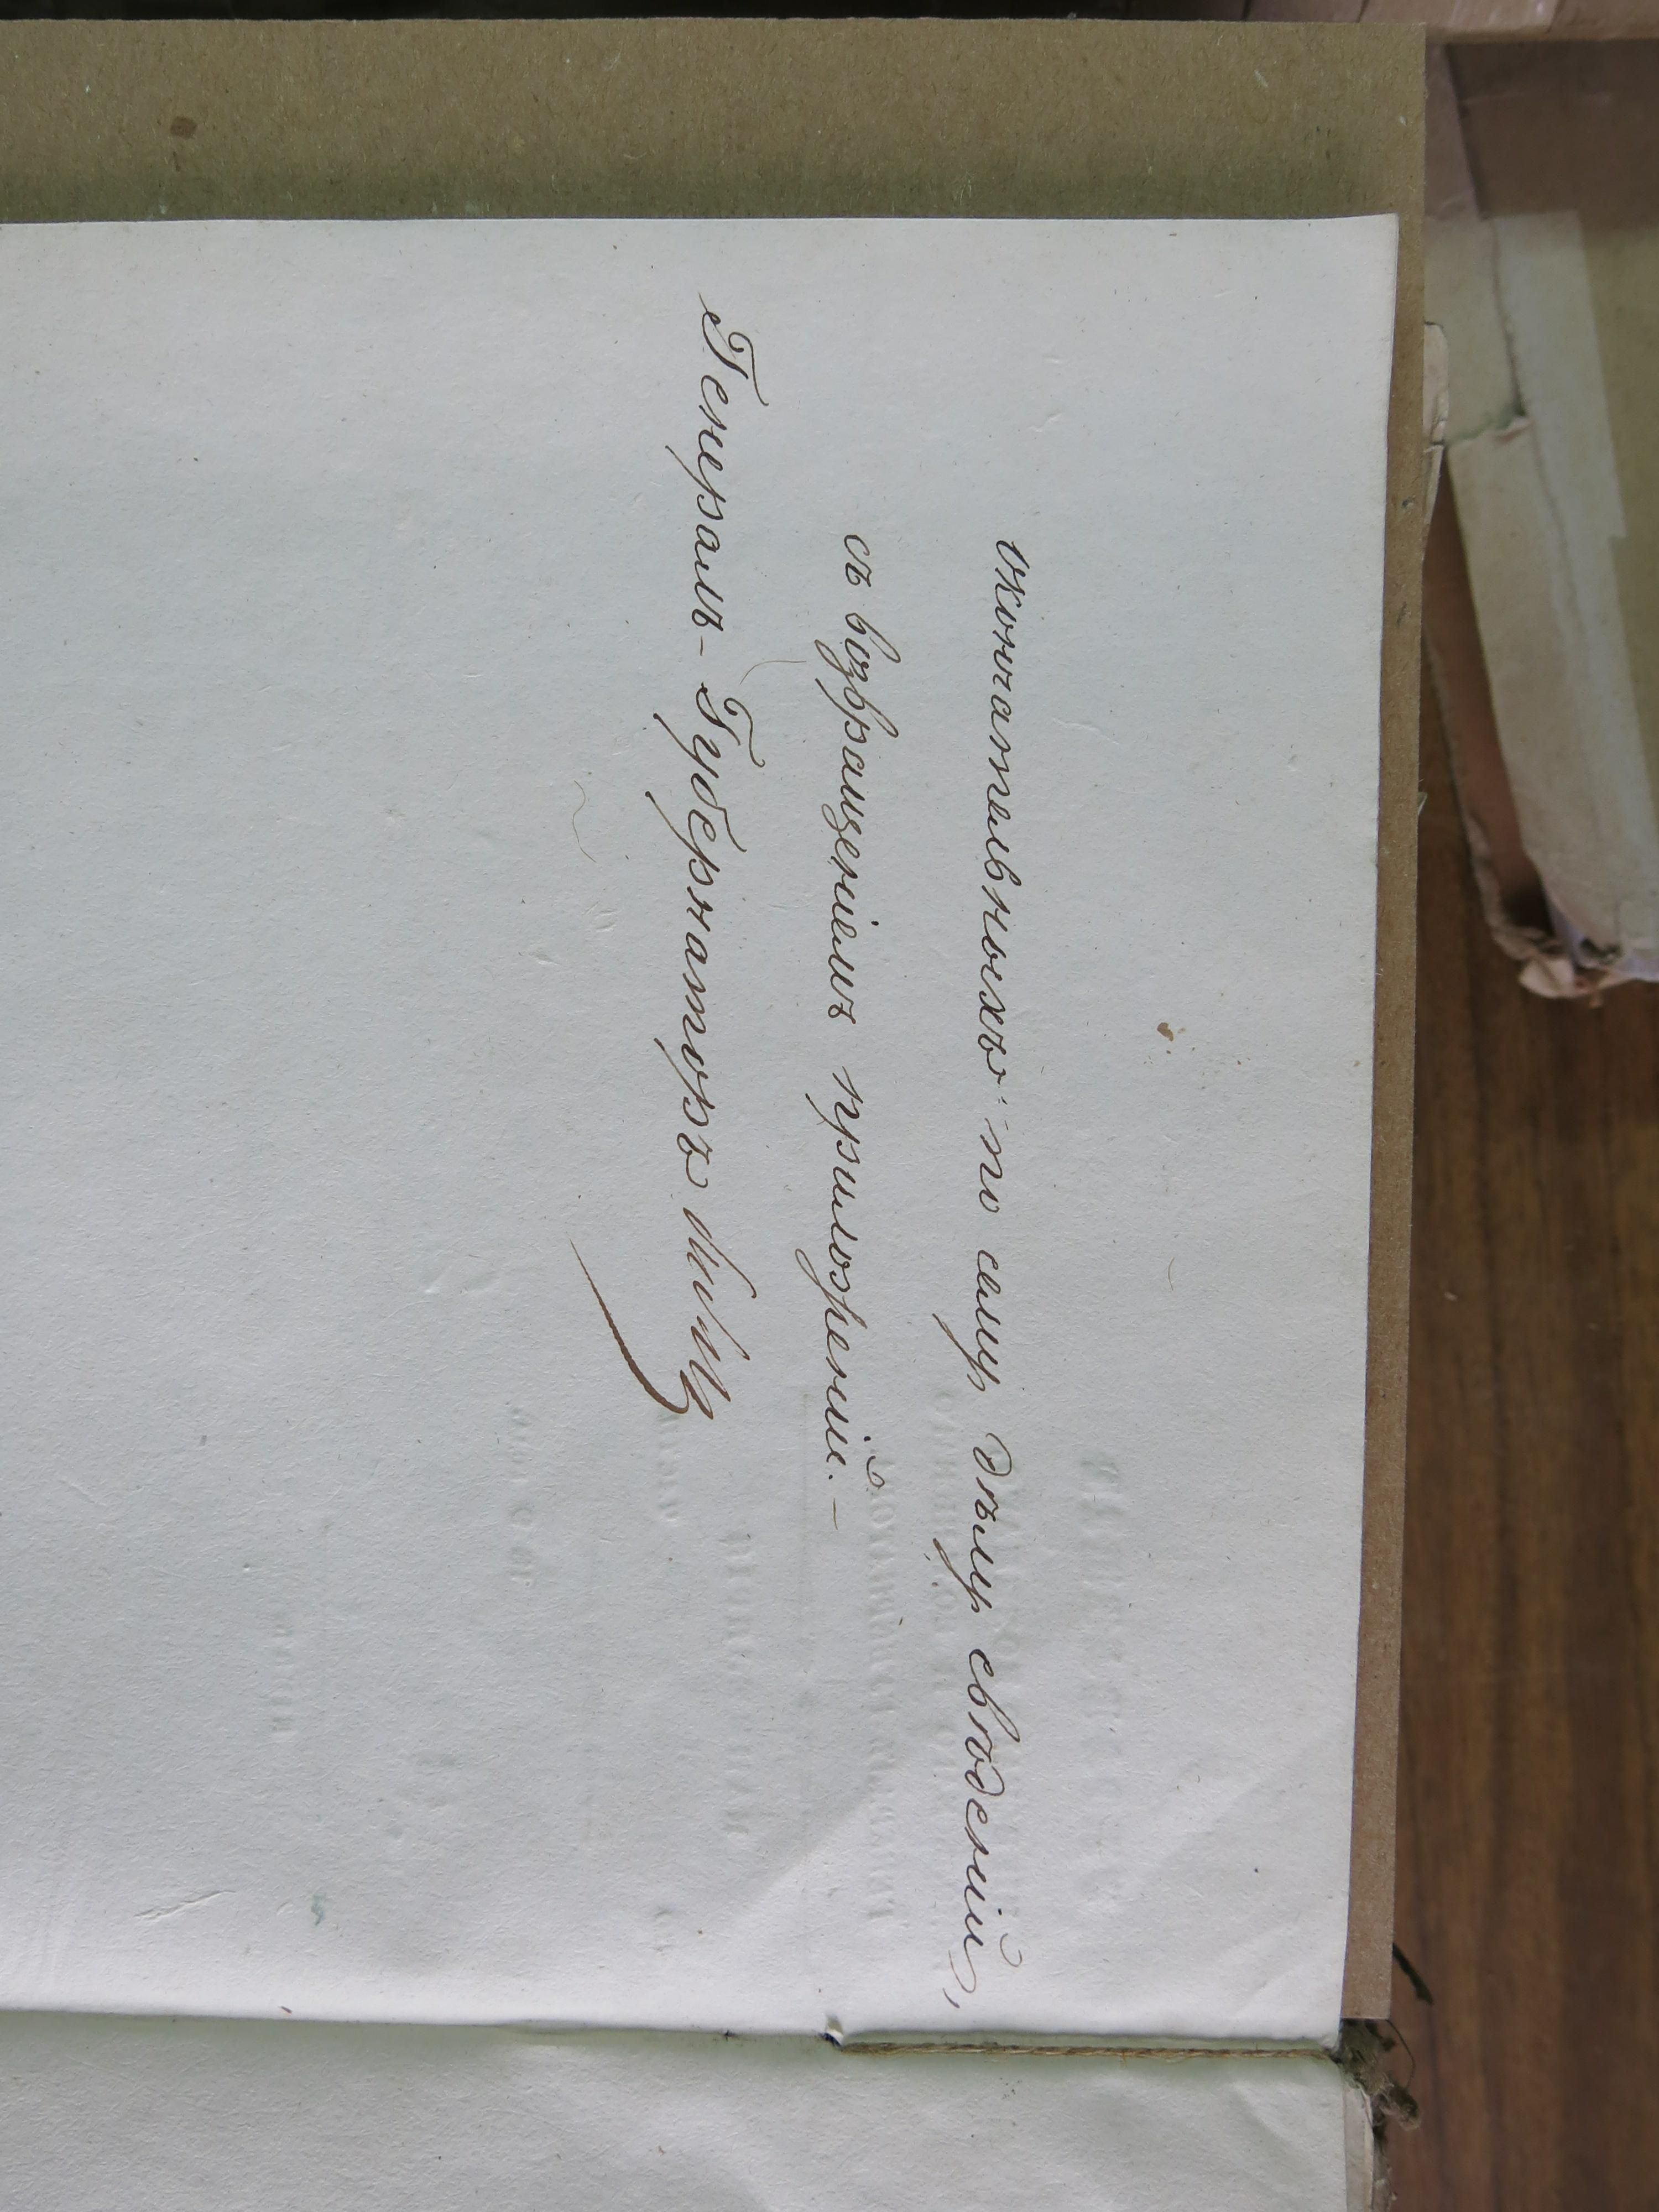 окончательныхъ по сему дѣлу свѣденій,
съ возвращеніемъ приложеній. –
Генералъ-Губернаторъ